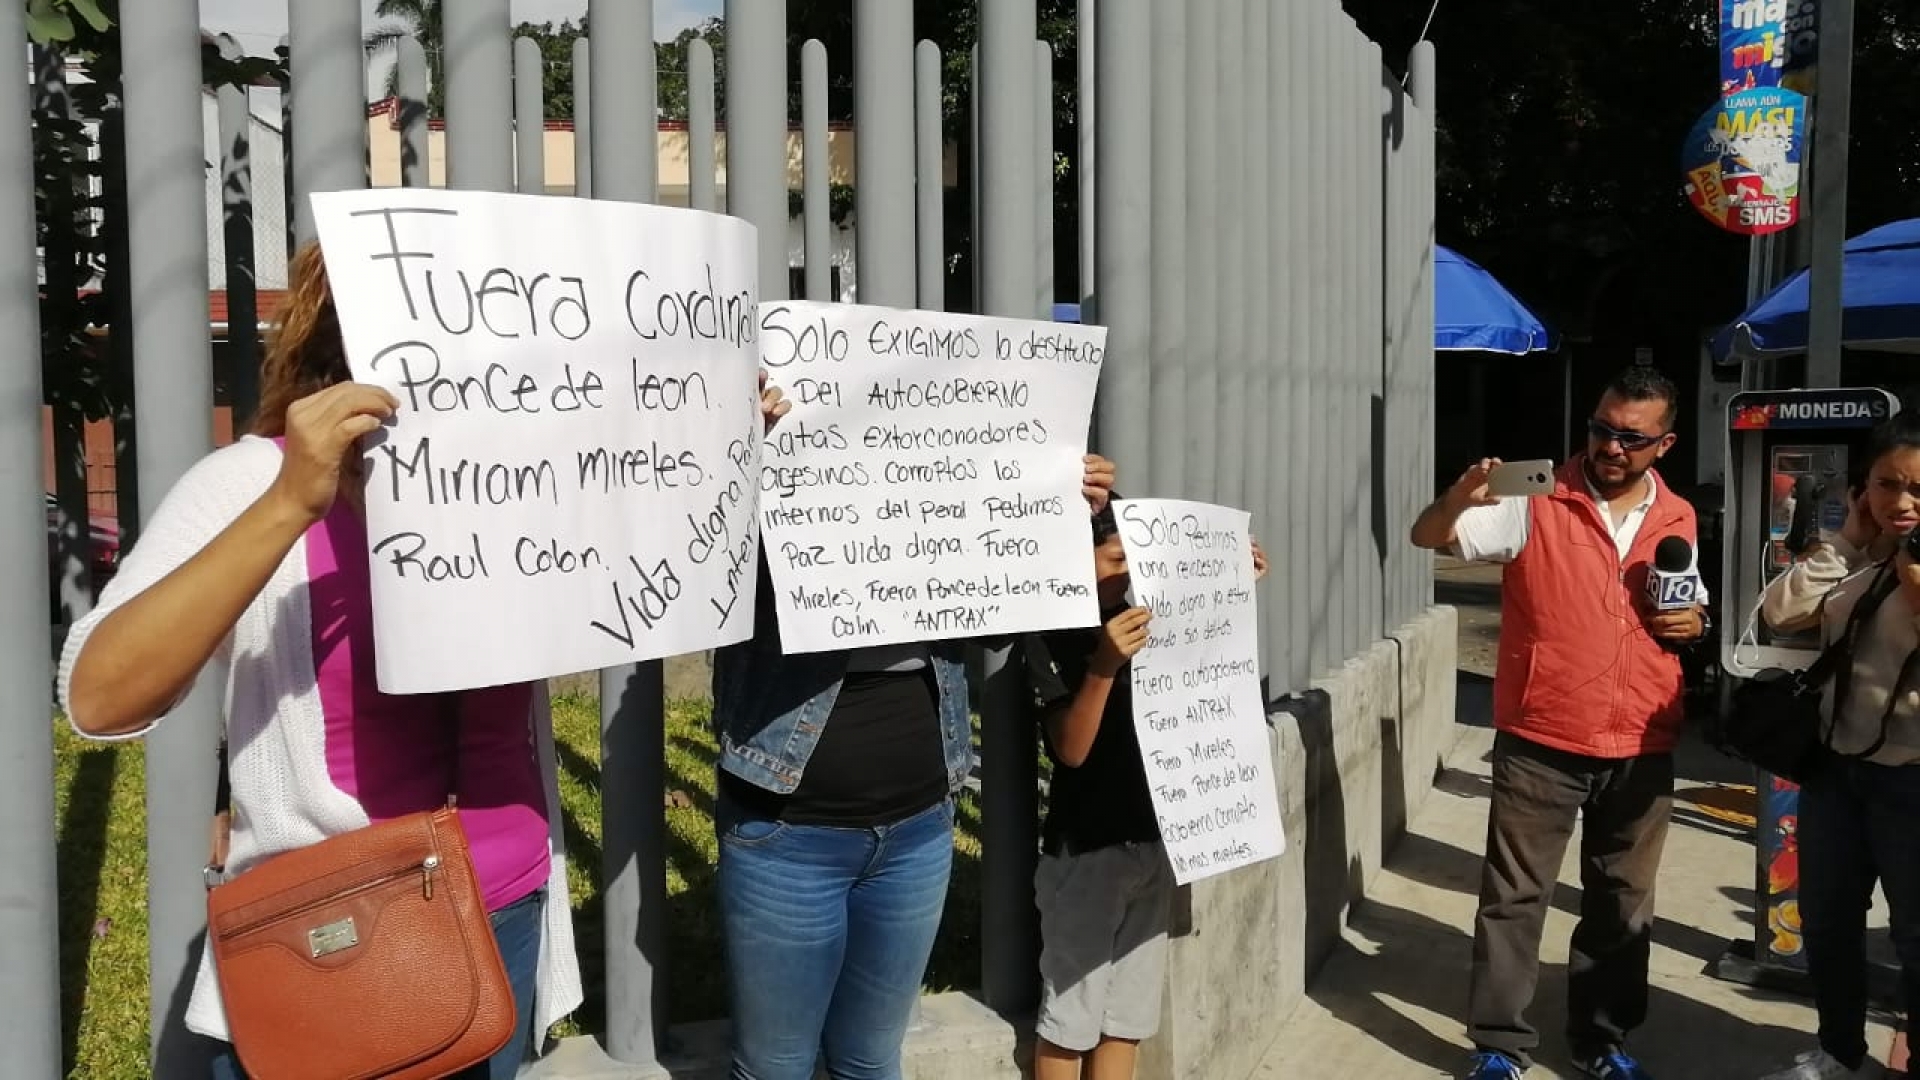 Fuera Cordinad
Ponce de leon.
Miriam mireles.
Raul Colon.
Vida digna Para
Inter
Solo EXIGIMOS la destitucio
DEl AUTOGOBIERNO
Ratas extorcionadores
asesinos. Corruptos los
internos del penal Pedimos
Paz vida digna. Fuera
Mireles, Fuera Ponce de leon Fuera
Colin. "ANTRAX"
Solo Pedimos
una reincesion y
Vida digna ya estan
pagando sis delitos
Fuera autogobierno
Fuera ANTRAX
Fuera Mireles
Fuera Ponce de leon
Gobierno Corrupto
No mas muertes.
LLAMA AÚN
MÁS!
AQUÍ
MENSAJE
SMS
MONEDAS
FQ